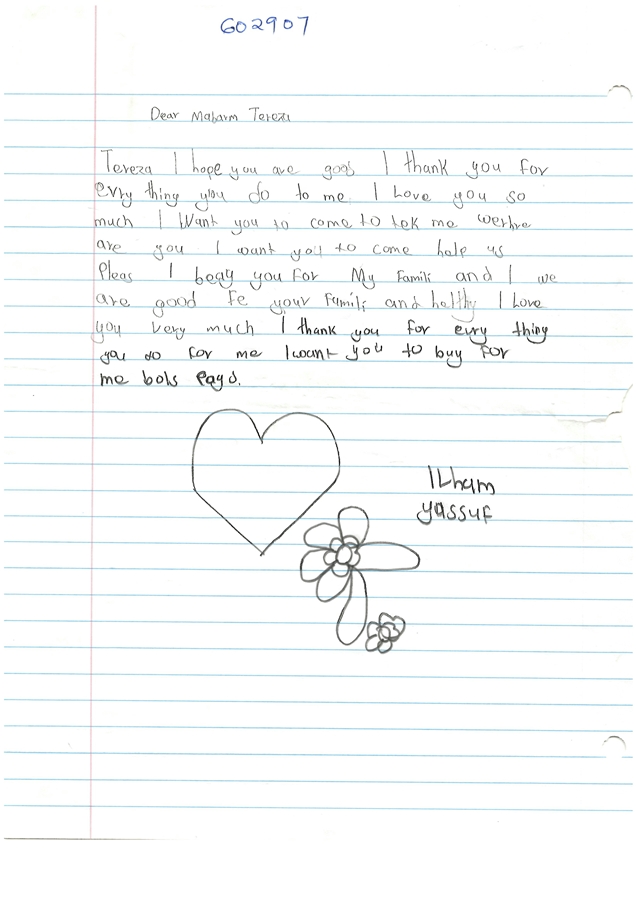 602907
Dear Maharm Tereza
Tereza I hope you are good I thank you for
evry thing you do to me I Love you so
much I Want you to come to tek me werhre
are you I want you to come help us
Pleas I begy you For My Famili and I we
are good Fe your Famili and helthy I Love
you very much I thank you for evry thing
you do for me I want you to buy for
me bols
ILham
yassuf